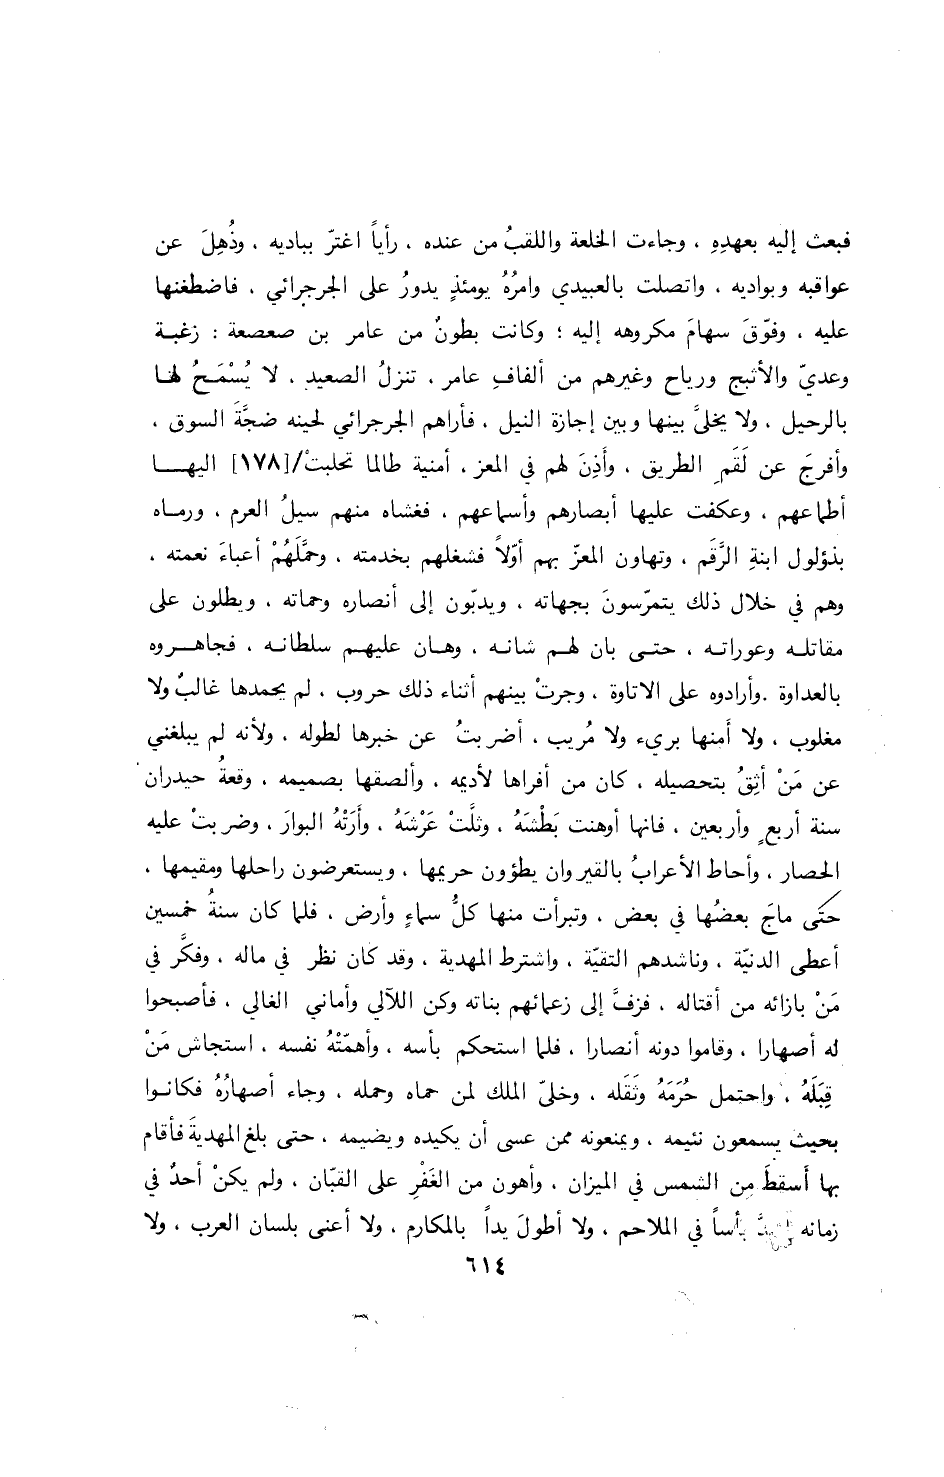 فبعث إليه بعهدِهِ ، وجاءت الخلعة واللقبُ من عنده ، رأياً اغترّ بباديه ، وذُهِلَ عن
عواقبه وبواديه ، واتصلت بالعبيدي وامرُهُ يومئذٍ يدورُ على الجرجرائي ، فاضطغنها
عليه ، وفوّقَ سهامَ مكروهه إليه ؛ وكانت بطونٌ من عامر بن صعصعة : زغبة
وعديّ والأثبج ورياح وغيرهم من ألفافِ عامر ، تنزلُ الصعيد ، لا يُسْمَحُ لها
بالرحيل ، ولا يخلىَّ بينها وبين إجازة النيل ، فأراهم الجرجرائي لحينه ضجَّةَ السوق ،
وأفرجَ عن لَقَمِ الطريق ، وأَذِنَ لهم في المعز ، أمنية طالما تحلبتْ/[١٧٨] اليها
أطماعهم ، وعكفت عليها أبصارهم وأسماعهم ، فغشاه منهم سيلُ العرم ، ورماه
بذؤلول ابنةِ الرَّقَم ، وتهاون المعزّ بهم أوّلاً فشغلهم بخدمته ، وحمَّلَهُمْ أعباءَ نعمته ،
وهم في خلال ذلك يتمرّسونَ بجهاته ، ويدبّون إلى أنصاره وحماته ، ويطلون على
مقاتله وعوراته ، حتى بان لهم شانه ، وهان عليهم سلطانه ، فجاهروه
بالعداوة .وأرادوه على الاتاوة ، وجرتْ بينهم أثناء ذلك حروب ، لم يحمدها غالبٌ ولا
مغلوب ، ولا أَمنها بريء ولا مُريب ، أضربتُ عن خبرها لطوله ، ولأنه لم يبلغني
عن مَنْ أثِقُ بتحصيله ، كان من أفراها لأديمه ، وألصقها بصميمه ، وقعةُ حيدران
سنة أربعٍ وأربعين ، فانها أوهنت بَطْشَهُ ، وثلَّتْ عَرْشَهُ ، وأرَتْهُ البوارَ ، وضربتْ عليه
الحصار ، وأحاط الأعرابُ بالقيروان يطؤون حريمها ، ويستعرضون راحلها ومقيمها ،
حتَى ماجَ بعضُها في بعض ، وتبرأت منها كلُّ سماءٍ وأرض ، فلما كان سنةُ خمسين
أعطى الدنيّة ، وناشدهم التقيّة ، واشترط المهدية ، وقد كان نظر في ماله ، وفكَّر في
مَنْ بازائه من أقتاله ، فزفَّ إلى زعمائهم بناته وكن اللآلي وأماني الغالي ، فأصبحوا
له أصهارا ، وقاموا دونه أنصارا ، فلما استحكم بأسه ، وأهمّتْهُ نفسه ، استجاش مَنْ
قِبَلَهُ ، واحتمل حُرَمَهُ وثَقَله ، وخلىّ الملك لمن حماه وحمله ، وجاء أصهارُهُ فكانوا
بحيث يسمعون نئيمه ، ويمنعونه ممن عسى أن يكيده ويضيمه ، حتى بلغ المهديةَ فأقام
بها أَسقطَ من الشمس في الميزان ، وأهون من الغَفْرِ على القبّان ، ولم يكنْ أحدٌ في
زمانه أشدَّ بأساً في الملاحم ، ولا أطولَ يداً بالمكارم ، ولا أعنى بلسان العرب ، ولا
٦١٤